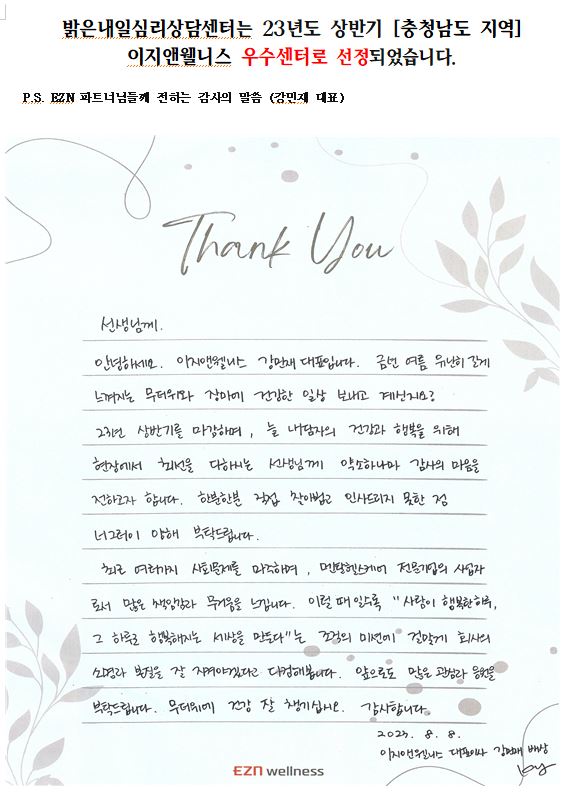 밝은내일심리상담센터는 23년도 상반기 [충청남도 지역]
이지앤웰니스 우수센터로 선정되었습니다.
P.S. EZN 파트너님들께 전하는 감사의 말씀 (강민재 대표)
Thank You
선생님께.
안녕하세요. 이지앤웰니스 강민재 대표입니다. 금번 여름 유난히 길게
느껴지는 무더위와 장마에 건강한 일상 보내고 계신지요?
23년 상반기를 마감하며, 늘 내담자의 건강과 행복을 위해
현장에서 최선을 다하시는 선생님께 약소하나마 감사의 마음을
전하고자 합니다. 한분한분 직접 찾아뵙고 인사드리지 못한 점
너그러이 양해 부탁드립니다.
최근 여러가지 사회문제를 마주하며, 멘탈헬스케어 전문기업의 사업자
로서 많은 책임감과 무거움을 느낍니다. 이럴 때 일수록 "사람이 행복한 하루,
그 하루로 행복해지는 세상을 만든다"는 조직의 미션에 걸맞게 회사의
소명과 본질을 잘 지켜야겠다고 다짐해봅니다. 앞으로도 많은 관심과 응원을
부탁드립니다. 무더위에 건강 잘 챙기십시오. 감사합니다.
2023. 8. 8.
이지앤웰니스 대표이사 강민재 배상
EZN wellness